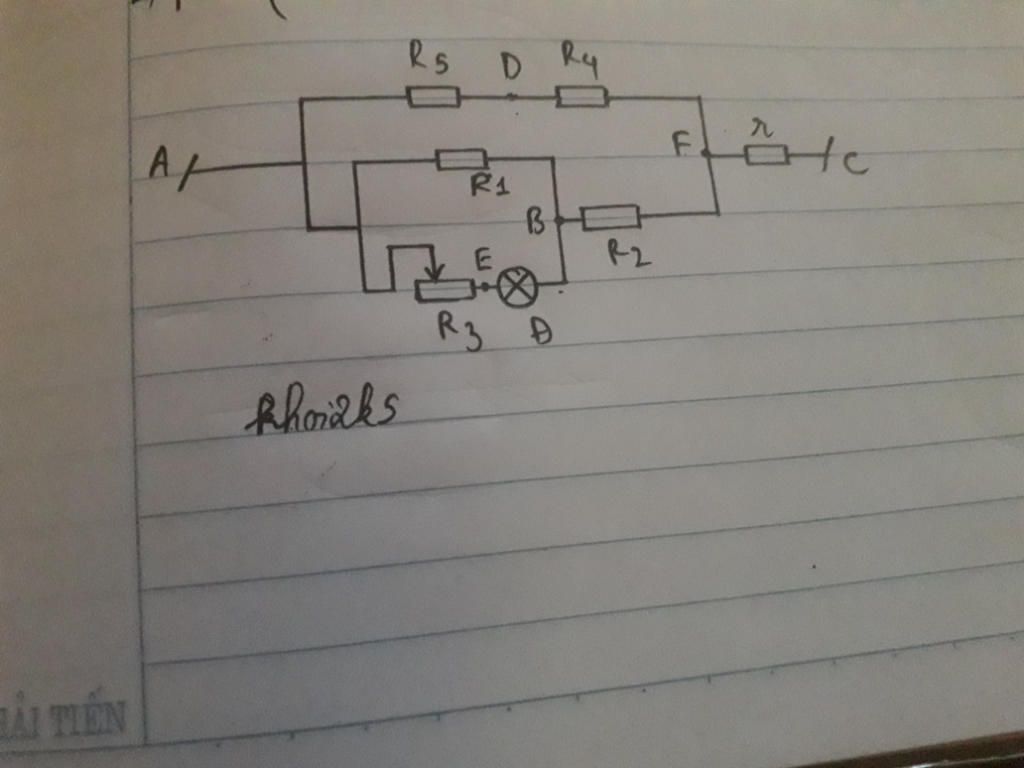 R5 D R4
A R1 F r C
B R2
E
R3 Đ
khoi2k5
ẢI TIẾN